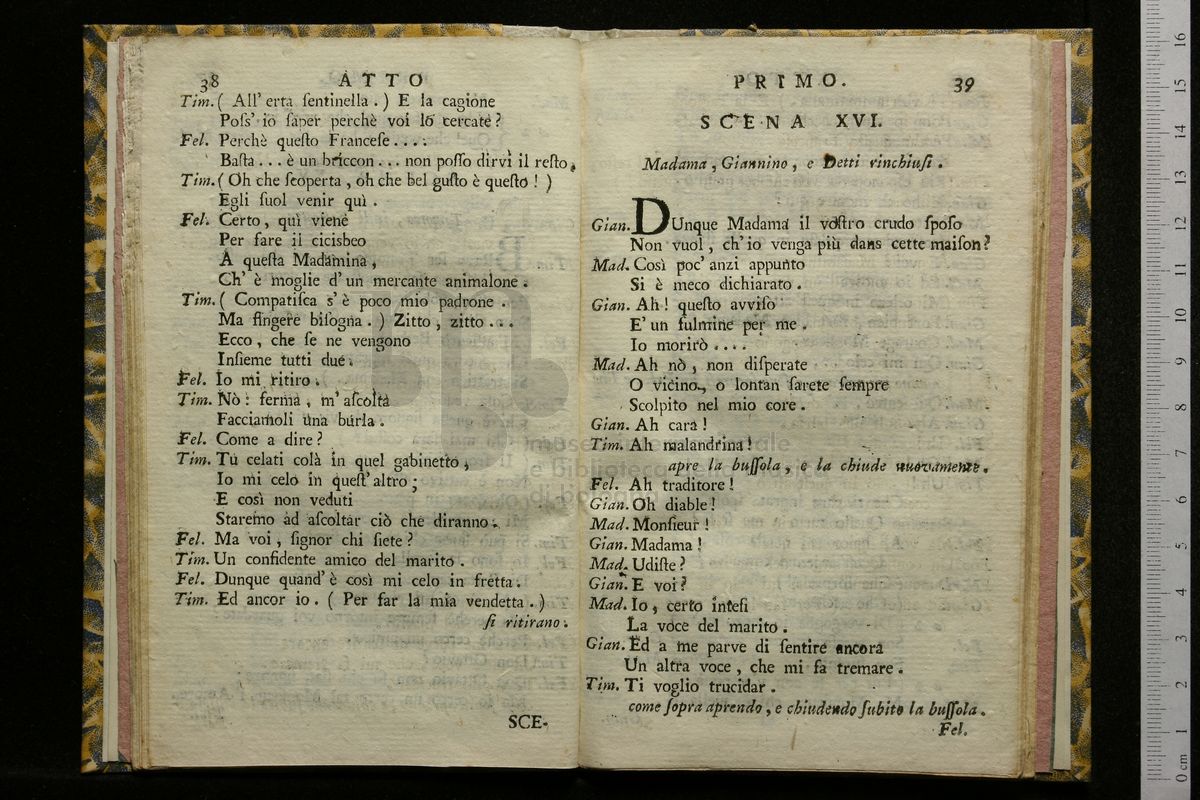 38 ATTO
Tim. ( All' erta ſentinella . ) E la cagione
Poſs' io ſaper perchè voi lo cercate ?
Fel. Perchè queſto Franceſe ....
Baſta ... è un briccon ... non poſſo dirvi il reſto.
Tim. ( Oh che ſcoperta , oh che bel guſto è queſto ! )
Egli ſuol venir quì .
Fel. Certo , quì viene
Per fare il cicisbeo
A queſta Madamina ,
Ch' è moglie d' un mercante animalone .
Tim. ( Compatiſca s' è poco mio padrone .
Ma fingere biſogna . ) Zitto , zitto ...
Ecco , che ſe ne vengono
Inſieme tutti due .
Fel. Io mi ritiro .
Tim. Nò : ferma , m' aſcolta
Facciamoli una burla .
Fel. Come a dire ?
Tim. Tu celati colà in quel gabinetto ,
Io mi celo in queſt' altro ;
E così non veduti
Staremo ad aſcoltar ciò che diranno .
Fel. Ma voi , ſignor chi ſiete ?
Tim. Un confidente amico del marito .
Fel. Dunque quand' è così mi celo in fretta .
Tim. Ed ancor io . ( Per far la mia vendetta . )
ſi ritirano .
SCE-
PRIMO. 39
SCENA XVI.
Madama , Giannino , e Detti rinchiuſi .
Gian. DUnque Madama il voſtro crudo ſpoſo
Non vuol , ch' io venga più dans cette maiſon ?
Mad. Così poc' anzi appunto
Si è meco dichiarato .
Gian. Ah ! queſto avviſo
E' un fulmine per me .
Io morirò ....
Mad. Ah nò , non diſperate
O vicino , o lontan ſarete ſempre
Scolpito nel mio core .
Gian. Ah cara !
Tim. Ah malandrina !
apre la buſſola , e la chiude nuovamente .
Fel. Ah traditore !
Gian. Oh diable !
Mad. Monſieur !
Gian. Madama !
Mad. Udiſte ?
Gian. E voi ?
Mad. Io , certo inteſi
La voce del marito .
Gian. Ed a me parve di ſentire ancora
Un altra voce , che mi fa tremare .
Tim. Ti voglio trucidar .
come ſopra aprendo , e chiudendo ſubito la buſſola .
Fel.